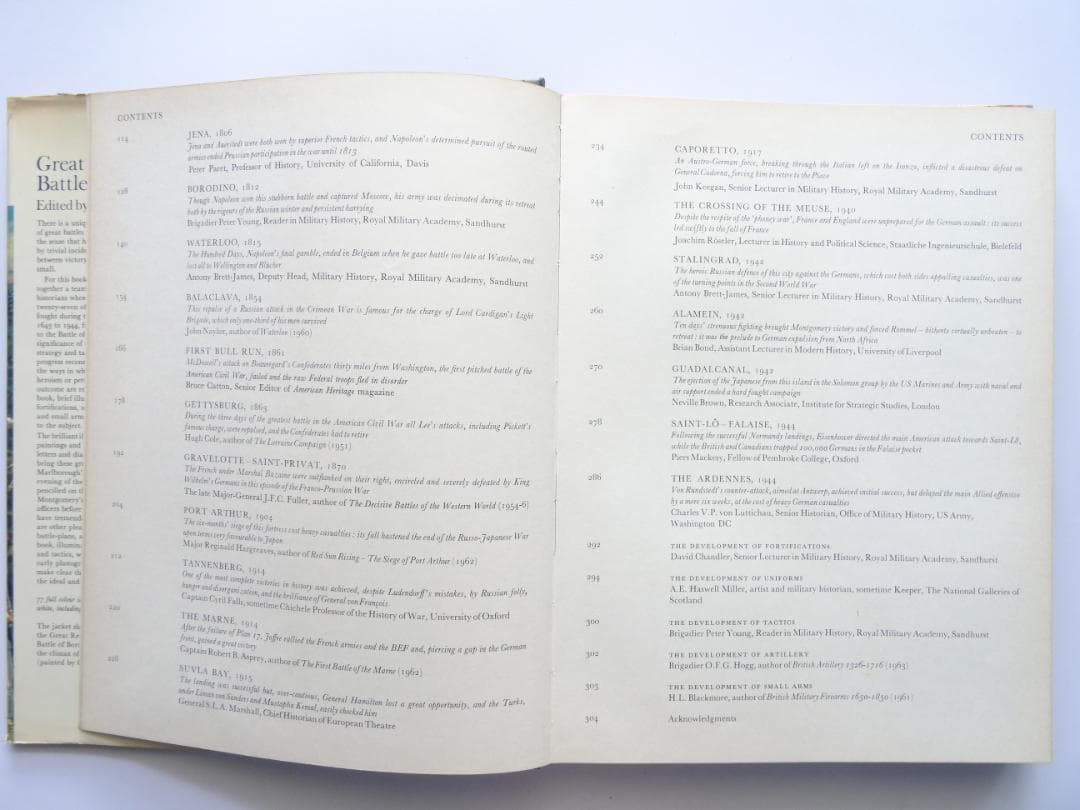 Great
Battle
Edited by
There is a uniq
of great battles
the sense that h
by trivial incide
between victory
small.
For this book
together a team
historians when
twenty-seven of
fought during t
1643 to 1944, f
to the Battle of
significance of
strategy and ta
progress recoun
the ways in wh
heroism or per
outcome are re
book, brief illu
fortifications, u
and small arms
to the subject.
The brilliant il
paintings and
letters and dia
being these gr
Marlborough'
evening of the
pencilled on t
Montgomery's
officers before
have tremend
are other plea
battle-plans, a
book, illumin
and tactics, w
early photogr
make clear th
the ideal and
77 full colour i
white, includin
The jacket sh
the Great Re
Battle of Bor
the climax of
(painted by
CONTENTS
114
JENA, 1806
Jena and Auerstedt were both won by superior French tactics, and Napoleon's determined pursuit of the routed
armies ended Prussian participation in the war until 1813
Peter Paret, Professor of History, University of California, Davis
128
BORODINO, 1812
Though Napoleon won this stubborn battle and captured Moscow, his army was decimated during its retreat
both by the rigours of the Russian winter and persistent harrying
Brigadier Peter Young, Reader in Military History, Royal Military Academy, Sandhurst
140
WATERLOO, 1815
The Hundred Days, Napoleon's final gamble, ended in Belgium when he gave battle too late at Waterloo, and
lost all to Wellington and Blücher
Antony Brett-James, Deputy Head, Military History, Royal Military Academy, Sandhurst
154
BALACLAVA, 1854
This repulse of a Russian attack in the Crimean War is famous for the charge of Lord Cardigan's Light
Brigade, which only one-third of his men survived
John Naylor, author of Waterloo (1960)
166
FIRST BULL RUN, 1861
McDowell's attack on Beauregard's Confederates thirty miles from Washington, the first pitched battle of the
American Civil War, failed and the raw Federal troops fled in disorder
Bruce Catton, Senior Editor of American Heritage magazine
178
GETTYSBURG, 1863
During the three days of the greatest battle in the American Civil War all Lee's attacks, including Pickett's
famous charge, were repulsed, and the Confederates had to retire
Hugh Cole, author of The Lorraine Campaign (1951)
192
GRAVELOTTE–SAINT-PRIVAT, 1870
The French under Marshal Bazaine were outflanked on their right, encircled and severely defeated by King
Wilhelm's Germans in this episode of the Franco-Prussian War
The late Major-General J.F.C. Fuller, author of The Decisive Battles of the Western World (1954-6)
204
PORT ARTHUR, 1904
The six-months' siege of this fortress cost heavy casualties: its fall hastened the end of the Russo-Japanese War
upon terms very favourable to Japan
Major Reginald Hargreaves, author of Red Sun Rising – The Siege of Port Arthur (1962)
212
TANNENBERG, 1914
One of the most complete victories in history was achieved, despite Ludendorff's mistakes, by Russian folly,
hunger and disorganization, and the brilliance of General von François
Captain Cyril Falls, sometime Chichele Professor of the History of War, University of Oxford
220
THE MARNE, 1914
After the failure of Plan 17, Joffre rallied the French armies and the BEF and, piercing a gap in the German
front, gained a great victory
Captain Robert B. Asprey, author of The First Battle of the Marne (1962)
228
SUVLA BAY, 1915
The landing was successful but, over-cautious, General Hamilton lost a great opportunity, and the Turks,
under Liman von Sanders and Mustapha Kemal, easily checked him
General S.L.A. Marshall, Chief Historian of European Theatre
CONTENTS
234
CAPORETTO, 1917
An Austro-German force, breaking through the Italian left on the Isonzo, inflicted a disastrous defeat on
General Cadorna, forcing him to retire to the Piave
John Keegan, Senior Lecturer in Military History, Royal Military Academy, Sandhurst
244
THE CROSSING OF THE MEUSE, 1940
Despite the respite of the 'phoney war', France and England were unprepared for the German assault: its success
led swiftly to the fall of France
Joachim Rösler, Lecturer in History and Political Science, Staatliche Ingenieurschule, Bielefeld
252
STALINGRAD, 1942
The heroic Russian defence of this city against the Germans, which cost both sides appalling casualties, was one
of the turning points in the Second World War
Antony Brett-James, Senior Lecturer in Military History, Royal Military Academy, Sandhurst
260
ALAMEIN, 1942
Ten days' strenuous fighting brought Montgomery victory and forced Rommel – hitherto virtually unbeaten – to
retreat: it was the prelude to German expulsion from North Africa
Brian Bond, Assistant Lecturer in Modern History, University of Liverpool
270
GUADALCANAL, 1942
The ejection of the Japanese from this island in the Solomon group by the US Marines and Army with naval and
air support ended a hard fought campaign
Neville Brown, Research Associate, Institute for Strategic Studies, London
278
SAINT-LÔ – FALAISE, 1944
Following the successful Normandy landings, Eisenhower directed the main American attack towards Saint-Lô,
while the British and Canadians trapped 100,000 Germans in the Falaise pocket
Piers Mackesy, Fellow of Pembroke College, Oxford
286
THE ARDENNES, 1944
Von Rundstedt's counter-attack, aimed at Antwerp, achieved initial success, but delayed the main Allied offensive
by a mere six weeks, at the cost of heavy German casualties
Charles V.P. von Luttichau, Senior Historian, Office of Military History, US Army,
Washington DC
292
THE DEVELOPMENT OF FORTIFICATIONS
David Chandler, Senior Lecturer in Military History, Royal Military Academy, Sandhurst
294
THE DEVELOPMENT OF UNIFORMS
A.E. Haswell Miller, artist and military historian, sometime Keeper, The National Galleries of
Scotland
300
THE DEVELOPMENT OF TACTICS
Brigadier Peter Young, Reader in Military History, Royal Military Academy, Sandhurst
302
THE DEVELOPMENT OF ARTILLERY
Brigadier O.F.G. Hogg, author of British Artillery 1326-1716 (1963)
303
THE DEVELOPMENT OF SMALL ARMS
H.L. Blackmore, author of British Military Firearms 1650-1850 (1961)
304
Acknowledgments